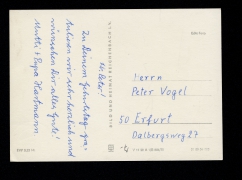 Lb. Peter!
Zu Deinem Geburtstag gra-
tulieren wir sehr herzlich und
wünschen Dir alles Gute!
Mutti + Papa Hartmann
Herrn
Peter Vogel
50 Erfurt
Dalbergsweg 27